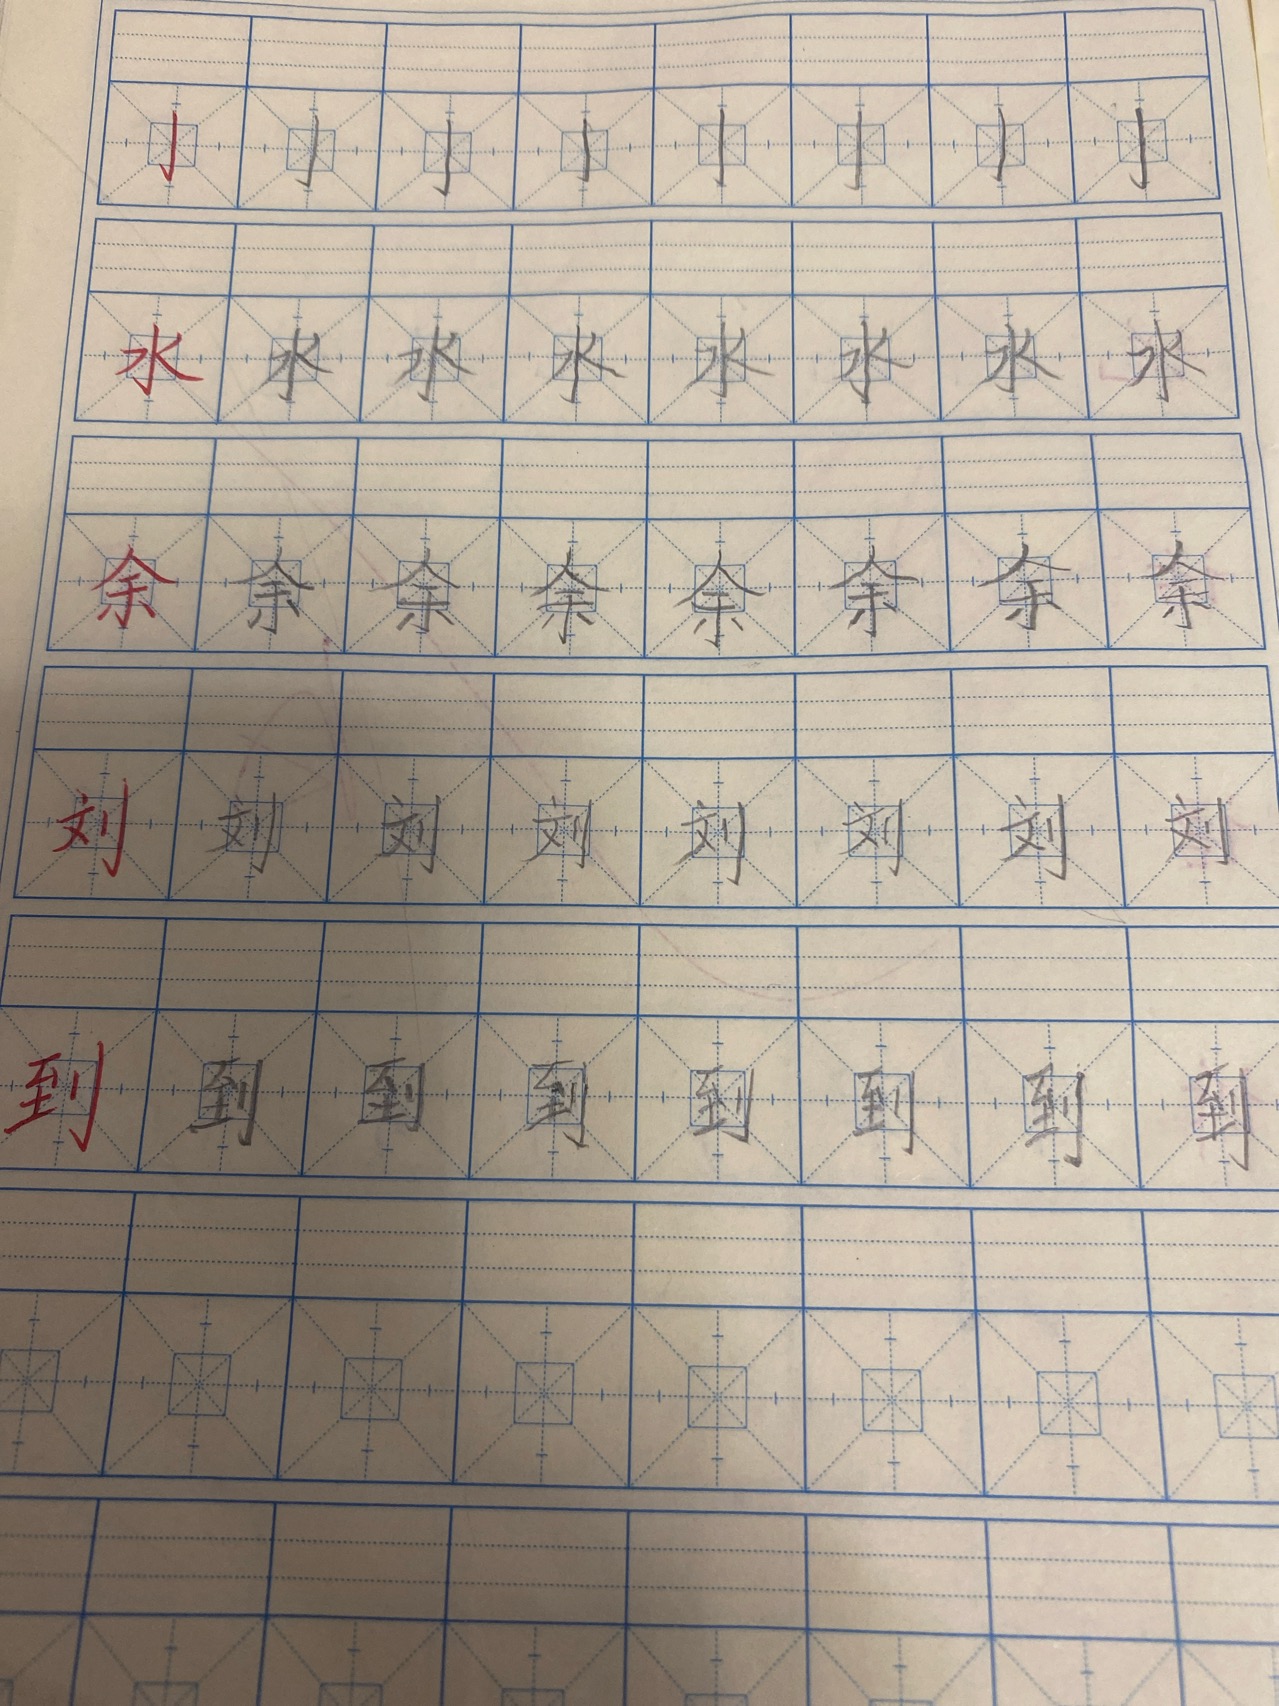 亅亅亅亅亅亅亅亅
水水水水水水水水
余余余余余余余余
刘刘刘刘刘刘刘刘
到到到到到到到到